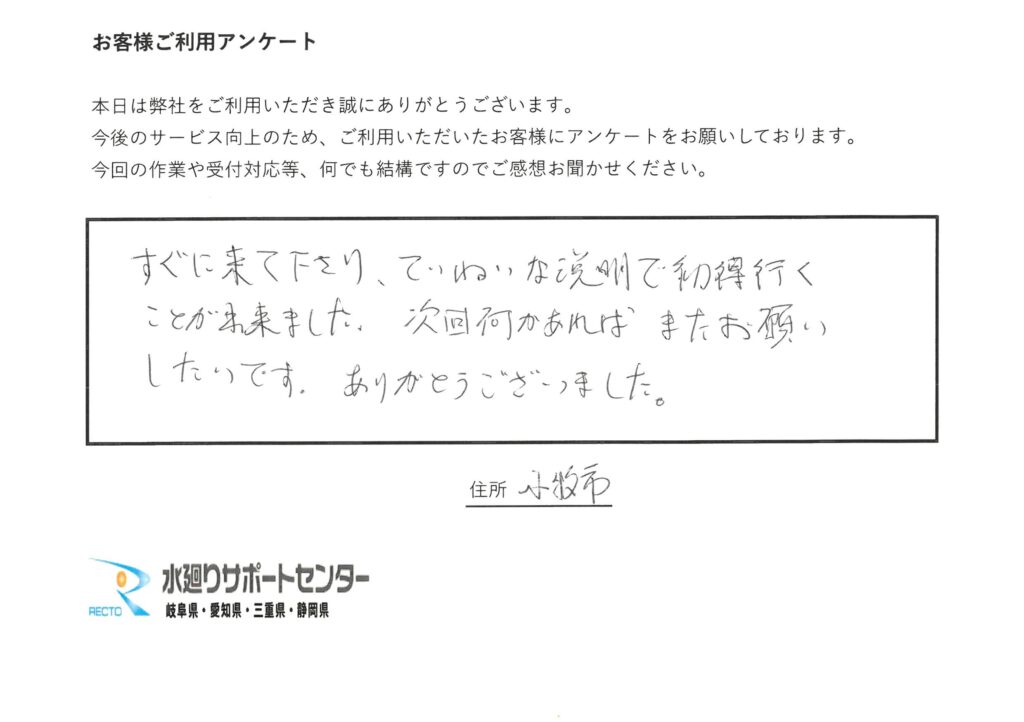 お客様ご利用アンケート
本日は弊社をご利用いただき誠にありがとうございます。
今後のサービス向上のため、ご利用いただいたお客様にアンケートをお願いしております。
今回の作業や受付対応等、何でも結構ですのでご感想お聞かせください。
すぐに来て下さり、ていねいな説明で納得行く
ことが出来ました。次回何かあれば またお願い
したいです。ありがとうございました。
住所 小牧市
RECTO
水廻りサポートセンター
岐阜県・愛知県・三重県・静岡県